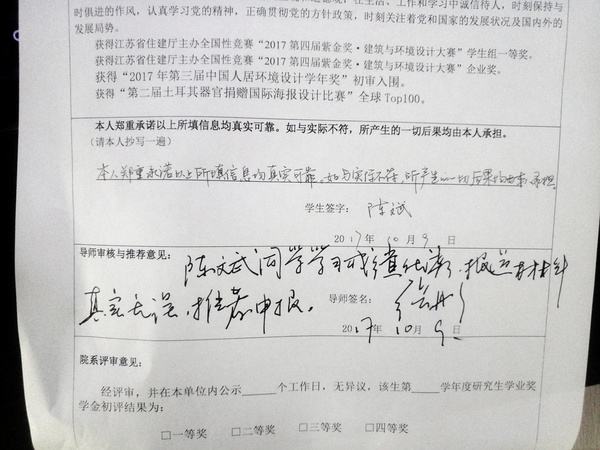 时俱进的作风，认真学习党的精神，正确贯彻党的方针政策，时刻关注着党和国家的发展状况及国内外的
发展局势。
获得江苏省住建厅主办全国性竞赛“2017 第四届紫金奖·建筑与环境设计大赛”学生组一等奖。
获得江苏省住建厅主办全国性竞赛“2017 第四届紫金奖·建筑与环境设计大赛”企业奖。
获得“2017 年第三届中国人居环境设计学年奖”初审入围。
获得“第二届土耳其器官捐赠国际海报设计比赛”全球 Top100。
本人郑重承诺以上所填信息均真实可靠。如与实际不符，所产生的一切后果均由本人承担。
(请本人抄写一遍)
本人郑重承诺以上所填信息均真实可靠。如与实际不符，所产生的一切后果均由本人承担.
学生签字：陈斌
2017年 10 月 9 日
导师审核与推荐意见：陈斌同学学习成绩优秀，报送材料
真实无误，推荐申报。
导师签名：
2017 年 10 月 9 日
院系评审意见：
经评审，并在本单位内公示_____个工作日，无异议，该生第_____学年度研究生学业奖
学金初评结果为：
□一等奖 □二等奖 □三等奖 □四等奖